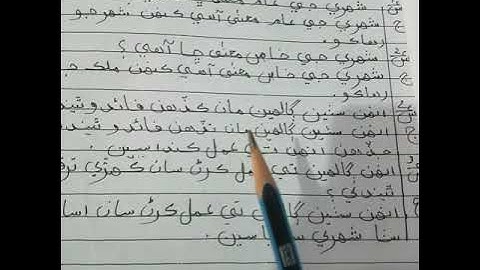 شهري جي عام معنيٰ آهي ڪنهن شهر جو
رهاڪو.
شهري جي خاص معنيٰ ڇا آهي ؟
شهري جي خاص معنيٰ آهي ڪنهن ملڪ جو
رهاڪو.
انهن سنين ڳالهين مان ڪڏهن فائدو ٿيندو
انهن سنين ڳالهين مان تڏهن فائدو ٿيندو
جڏهن انهن تي عمل ڪنداسين.
انهن ڳالهين تي عمل ڪرڻ سان ڪهڙي ترقي
ٿيندي ؟
انهن سنين تي عمل ڪرڻ سان اسان
سٺا شهري